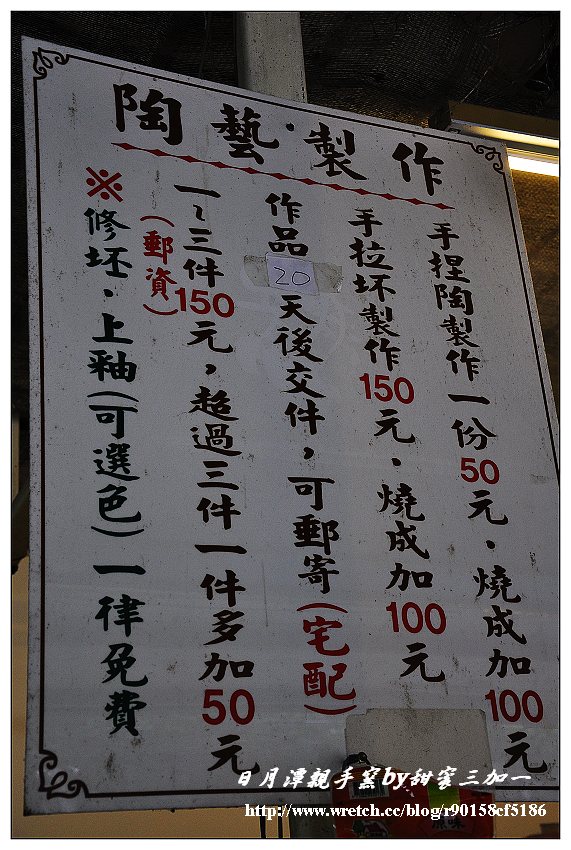 陶藝·製作
手捏陶製作一份50元·燒成加100元
手拉坏製作150元·燒成加100元
作品20天後交件,可郵寄(宅配)
一~三件150元,超過三件一件多加50元
(郵資)
※修坯·上釉(可選色)一律免費
日月潭親手窯by甜蜜三加一
http://www.wretch.cc/blog/r90158cf5186